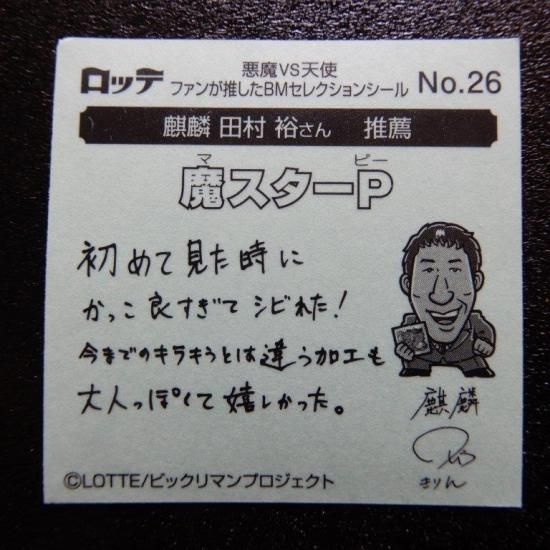 ロッテ
悪魔VS天使
ファンが推したBMセレクションシール
No.26
麒麟 田村 裕さん 推薦
マ ピー
魔スターP
初めて見た時に
かっこ良すぎてシビれた!
今までのキラキラとは違う加工も
大人っぽくて嬉しかった。
麒麟
きりん
©LOTTE/ビックリマンプロジェクト